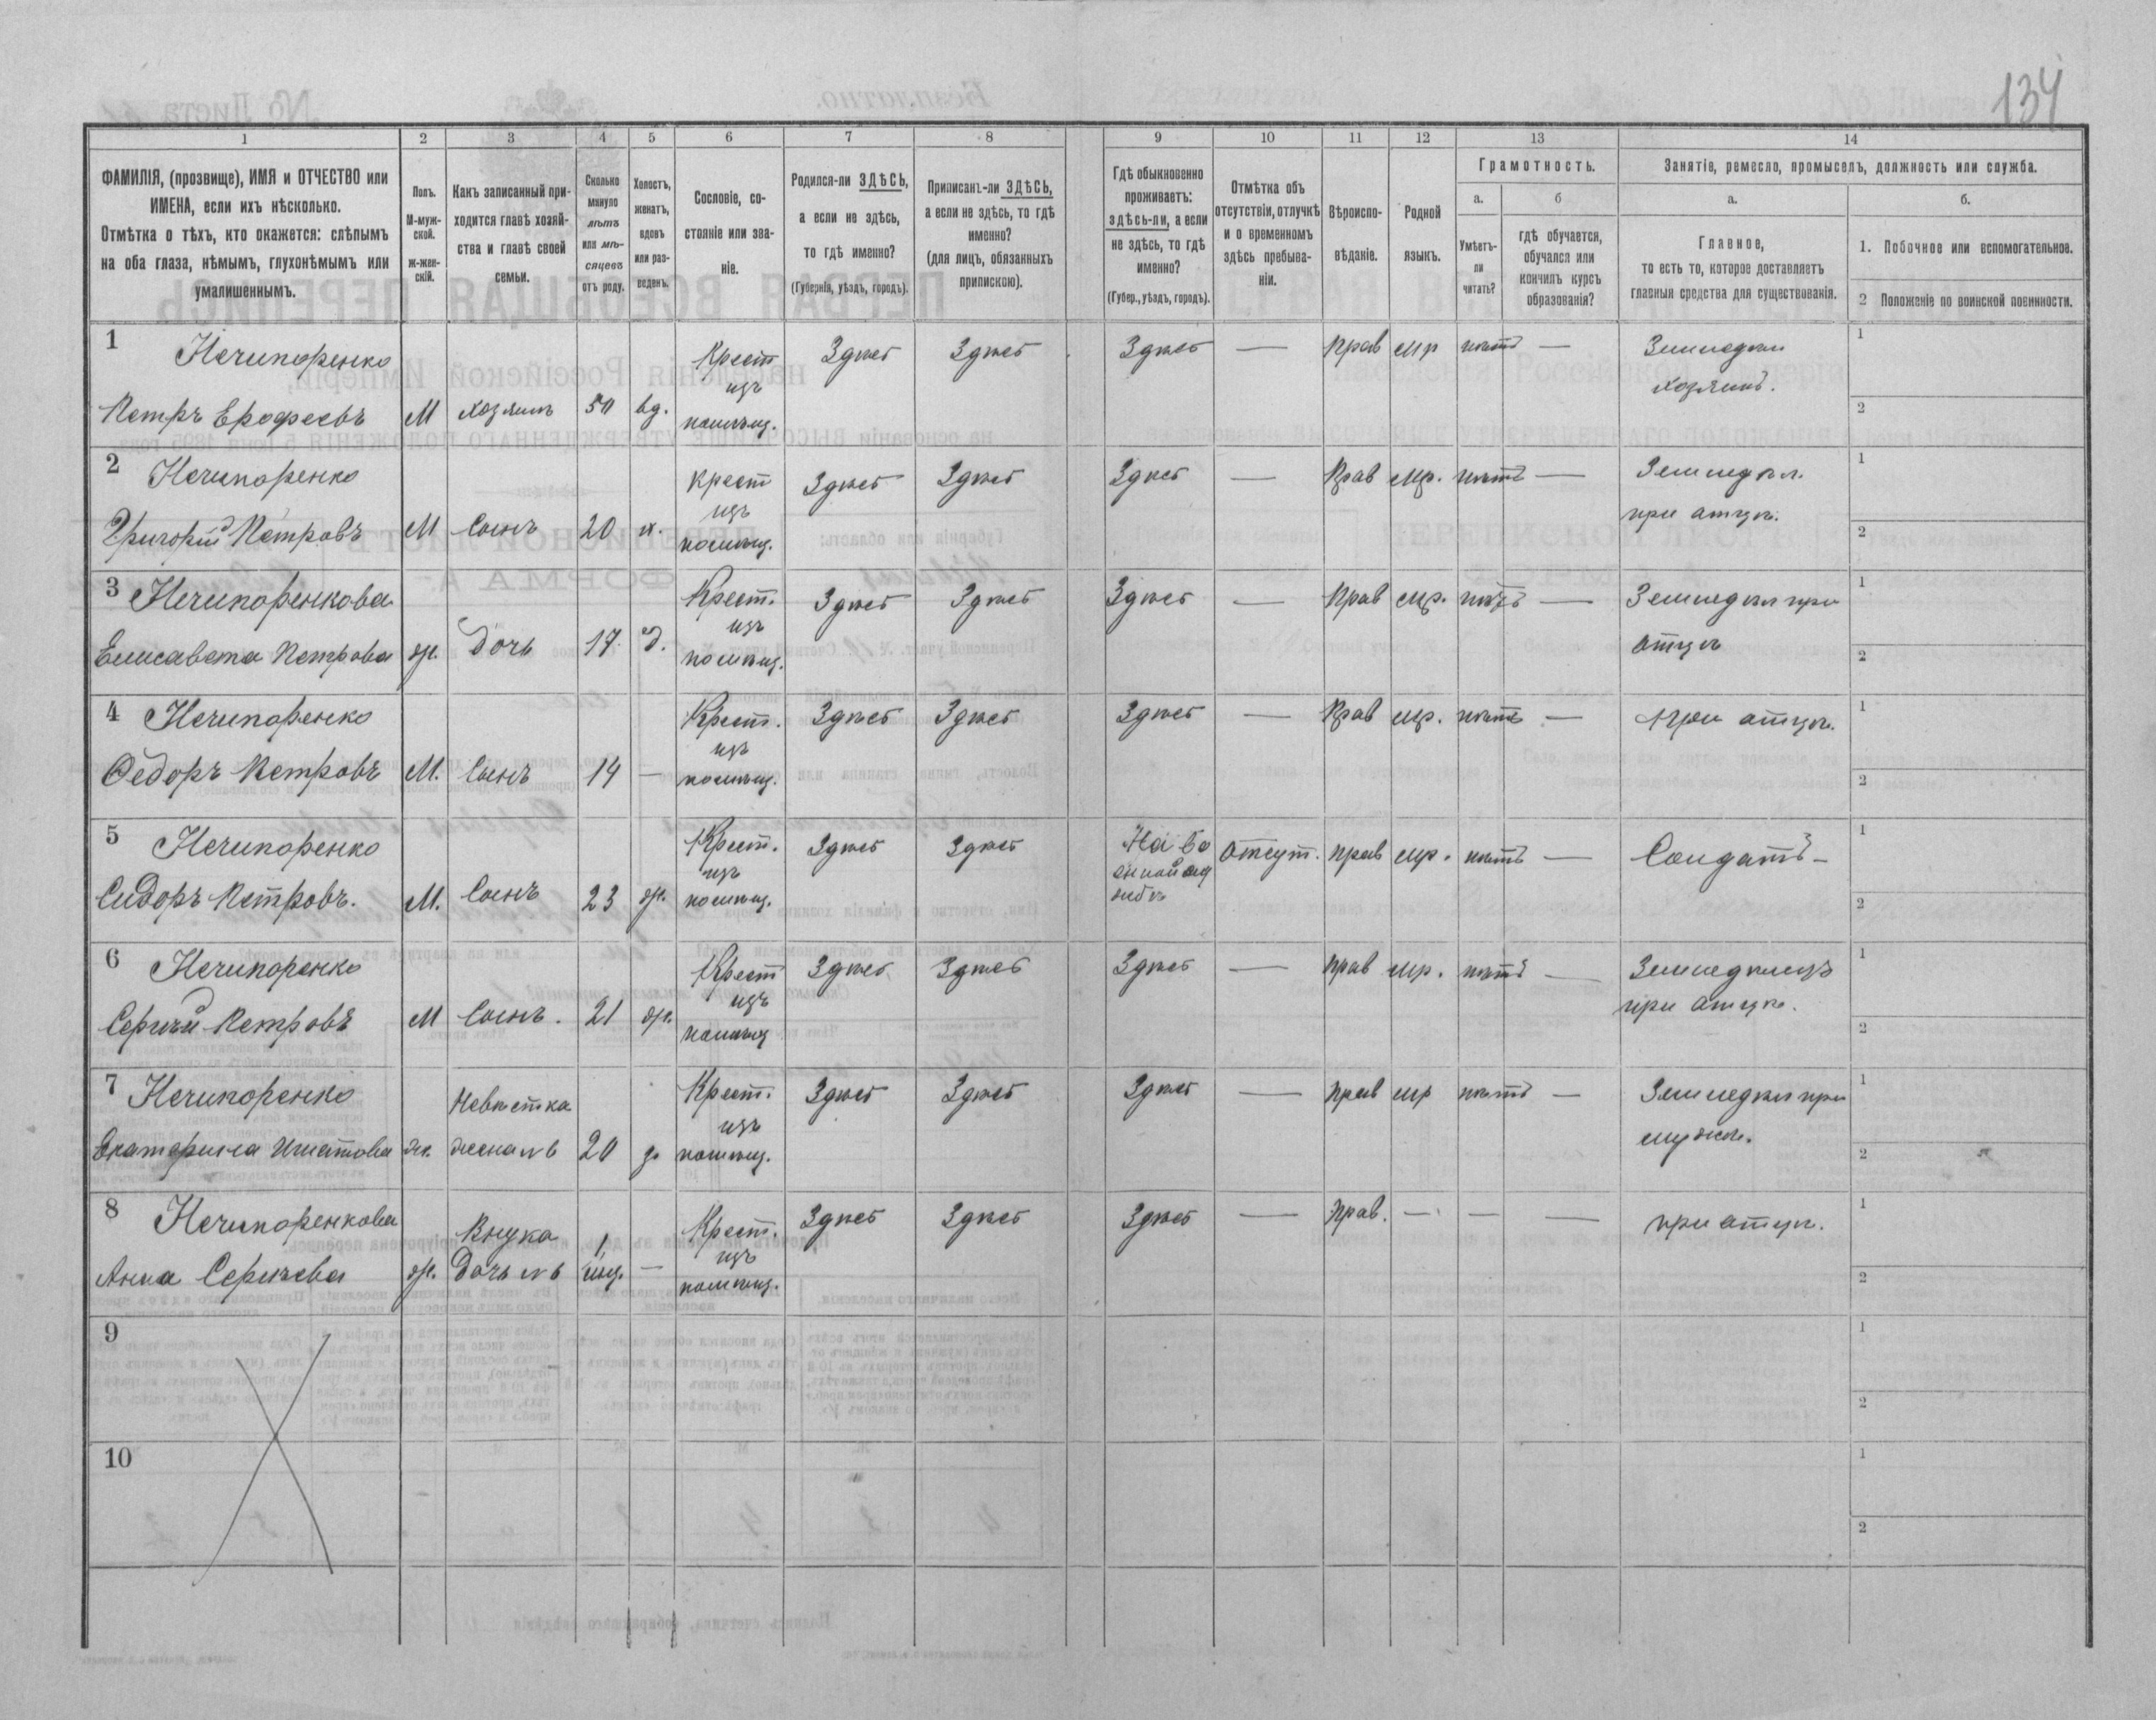 134
1 2 3 4 5 6 7 8 9 10 11 12 13 14
ФАМИЛІЯ, (прозвище), ИМЯ и ОТЧЕСТВО или
ИМЕНА, если ихъ нѣсколько.
Отмѣтка о тѣхъ, кто окажется: слѣпымъ
на оба глаза, нѣмымъ, глухонѣмымъ или
умалишеннымъ.
Полъ.
М-муж-
ской.
ж-жен-
скій.
Какъ записанный при-
ходится главѣ хозяй-
ства и главѣ своей
семьи.
Сколько
минуло
лѣтъ
или мѣ-
сяцевъ
отъ роду.
Холостъ,
женатъ,
вдовъ
или раз-
веденъ.
Сословіе, со-
стояніе или зва-
ніе.
Родился-ли ЗДѢСЬ,
а если не здѣсь,
то гдѣ именно?
(Губернія, уѣздъ, городъ).
Приписанъ-ли ЗДѢСЬ,
а если не здѣсь, то гдѣ
именно?
(для лицъ, обязанныхъ
припискою).
Гдѣ обыкновенно
проживаетъ:
здѣсь-ли, а если
не здѣсь, то гдѣ
именно?
(Губер., уѣздъ, городъ).
Отмѣтка объ
отсутствіи, отлучкѣ
и о временномъ
здѣсь пребыва-
ніи.
Вѣроиспо-
вѣданіе.
Родной
языкъ.
Грамотность.
а.
Умѣетъ-
ли
читать?
б
гдѣ обучается,
обучался или
кончилъ курсъ
образованія?
Занятіе, ремесло, промыселъ, должность или служба.
а.
Главное,
то есть то, которое доставляетъ
главныя средства для существованія.
б.
1. Побочное или вспомогательное.
2 Положеніе по воинской повинности.
1 Нечипоренко Крест Здѣсь Здѣсь Здѣсь — Прав мр нѣтъ — Земледѣл 1
изъ хозяинъ.
Петръ Ерофеевъ М хозяинъ 50 вд. помѣщ. 2
2 Нечипоренко крест Здѣсь Здѣсь Здѣсь — Прав мр. нѣтъ — Земледѣл. 1
изъ при отцѣ.
Григорій Петровъ М Сынъ 20 х. помѣщ. 2
3 Нечипоренкова Крест. Здѣсь Здѣсь Здѣсь — Прав мр. нѣтъ — Земледѣл при 1
изъ отцѣ
Елисавета Петрова ж. дочь 17. д. помѣщ. 2
4 Нечипоренко Крест. Здѣсь Здѣсь Здѣсь — Прав мр. нѣтъ — при отцѣ. 1
изъ
Ѳедоръ Петровъ М. Сынъ 14 — помѣщ. 2
5 Нечипоренко Крест. Здѣсь Здѣсь На во Отсут. прав мр. нѣтъ — Солдатъ — 1
изъ енной слу
Сидоръ Петровъ. М. Сынъ 23 ж. помѣщ. жбѣ 2
6 Нечипоренко Крест Здѣсь Здѣсь Здѣсь — прав мр. нѣтъ — Земледѣлецъ 1
изъ при отцѣ.
Сергѣй Петровъ М Сынъ. 21 ж. помѣщ 2
7 Нечипоренко Невѣстка Крест. Здѣсь Здѣсь Здѣсь — прав мр нѣтъ — Земледѣл при 1
изъ мужѣ.
Екатерина Игнатова ж. жена № 6 20 з. помѣщ. 2
8 Нечипоренкова Внука 1 Крест. Здѣсь Здѣсь Здѣсь — Прав. — — — при отцѣ. 1
изъ
Анна Сергѣева ж. Дочь № 6 мѣц. — помѣщ. 2
9 1
2
10 1
2